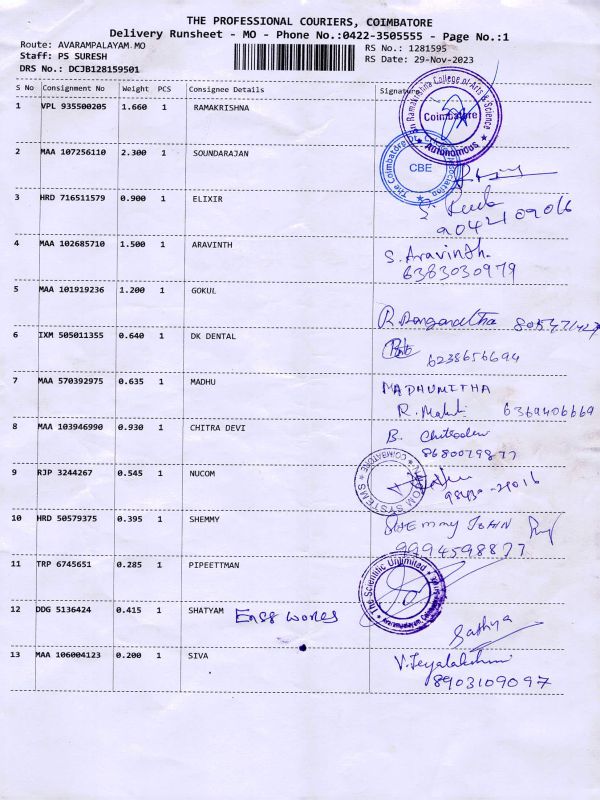 THE PROFESSIONAL COURIERS, COIMBATORE
Delivery Runsheet - MO - Phone No.:0422-3505555 - Page No.:1
Route: AVARAMPALAYAM MO
RS No.: 1281595
Staff: PS SURESH
RS Date: 29-Nov-2023
DRS No.: DCJB128159501
S No Consignment No Weight PCS Consignee Details Signature
1 VPL 935500205 1.660 1 RAMAKRISHNA
Sri Ramakrishna College of Arts & Science
Coimbatore
Autonomous
2 MAA 107256110 2.300 1 SOUNDARAJAN
CBE
3 HRD 716511579 0.900 1 ELIXIR
9042109016
4 MAA 102685710 1.500 1 ARAVINTH
S. Aravinth.
6383030979
5 MAA 101919236 1.200 1 GOKUL
6 IXM 505011355 0.640 1 DK DENTAL
6238656694
7 MAA 570392975 0.635 1 MADHU
MADHUMITHA
6369406669
8 MAA 103946990 0.930 1 CHITRA DEVI
B. Chitradevi
8680079877
9 RJP 3244267 0.545 1 NUCOM
NUCOM SYSTEMS
COIMBATORE
10 HRD 50579375 0.395 1 SHEMMY
SHEMMY JOHN
9994598877
11 TRP 6745651 0.285 1 PIPEETTMAN
The Scientific Unlimited
Avarampalayam, Coimbatore
12 DDG 5136424 0.415 1 SHATYAM
Sathya
13 MAA 106004123 0.200 1 SIVA
V. Jeyalakshmi
8903109097